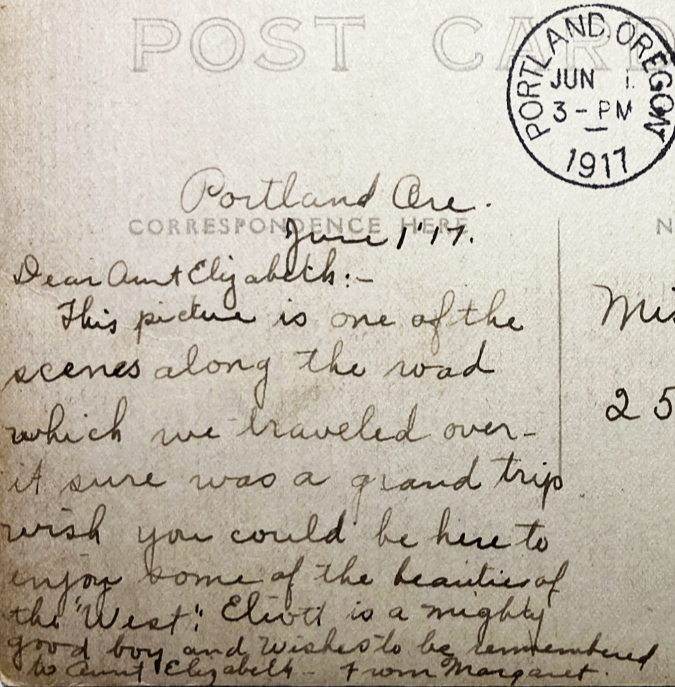 POST CARD
PORTLAND OREGON
JUN 1
3-PM
1917
Portland Ore.
CORRESPONDENCE HERE
June 1'17.
Dear Aunt Elizabeth:-
This picture is one of the
scenes along the road
which we traveled over-
it sure was a grand trip
wish you could be here to
enjoy some of the beauties of
the "West". Eliott is a mighty
good boy and wishes to be remembered
to Aunt Elizabeth - From Margaret.
N
Mis
25